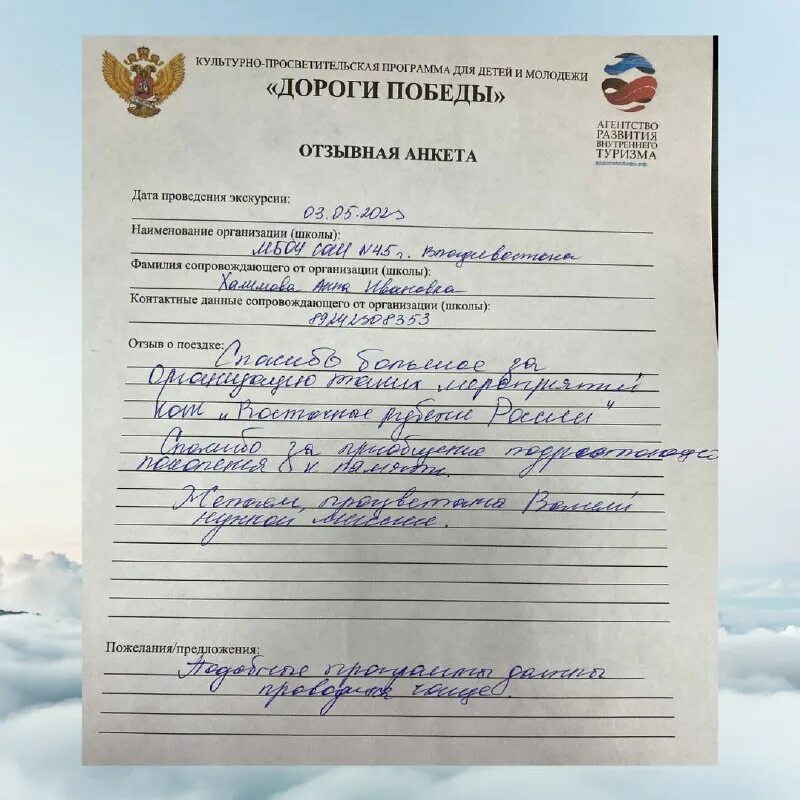 КУЛЬТУРНО-ПРОСВЕТИТЕЛЬСКАЯ ПРОГРАММА ДЛЯ ДЕТЕЙ И МОЛОДЕЖИ
«ДОРОГИ ПОБЕДЫ»
АГЕНТСТВО
РАЗВИТИЯ
ВНУТРЕННЕГО
ТУРИЗМА
дорогипобеды.рф
ОТЗЫВНАЯ АНКЕТА
Дата проведения экскурсии:
03.05.2023
Наименование организации (школы):
МБОУ СОШ №45 г. Владивостока
Фамилия сопровождающего от организации (школы):
Халимова Анна Ивановна
Контактные данные сопровождающего от организации (школы):
89242308353
Отзыв о поездке:
Спасибо большое за
организацию таких мероприятий
как „Восточные рубежи России"
Спасибо за приобщение подрастающего
поколения к памяти.
Желаем процветания Вашей
нужной миссии.
Пожелания/предложения:
Подобные программы должны
проводится чаще.